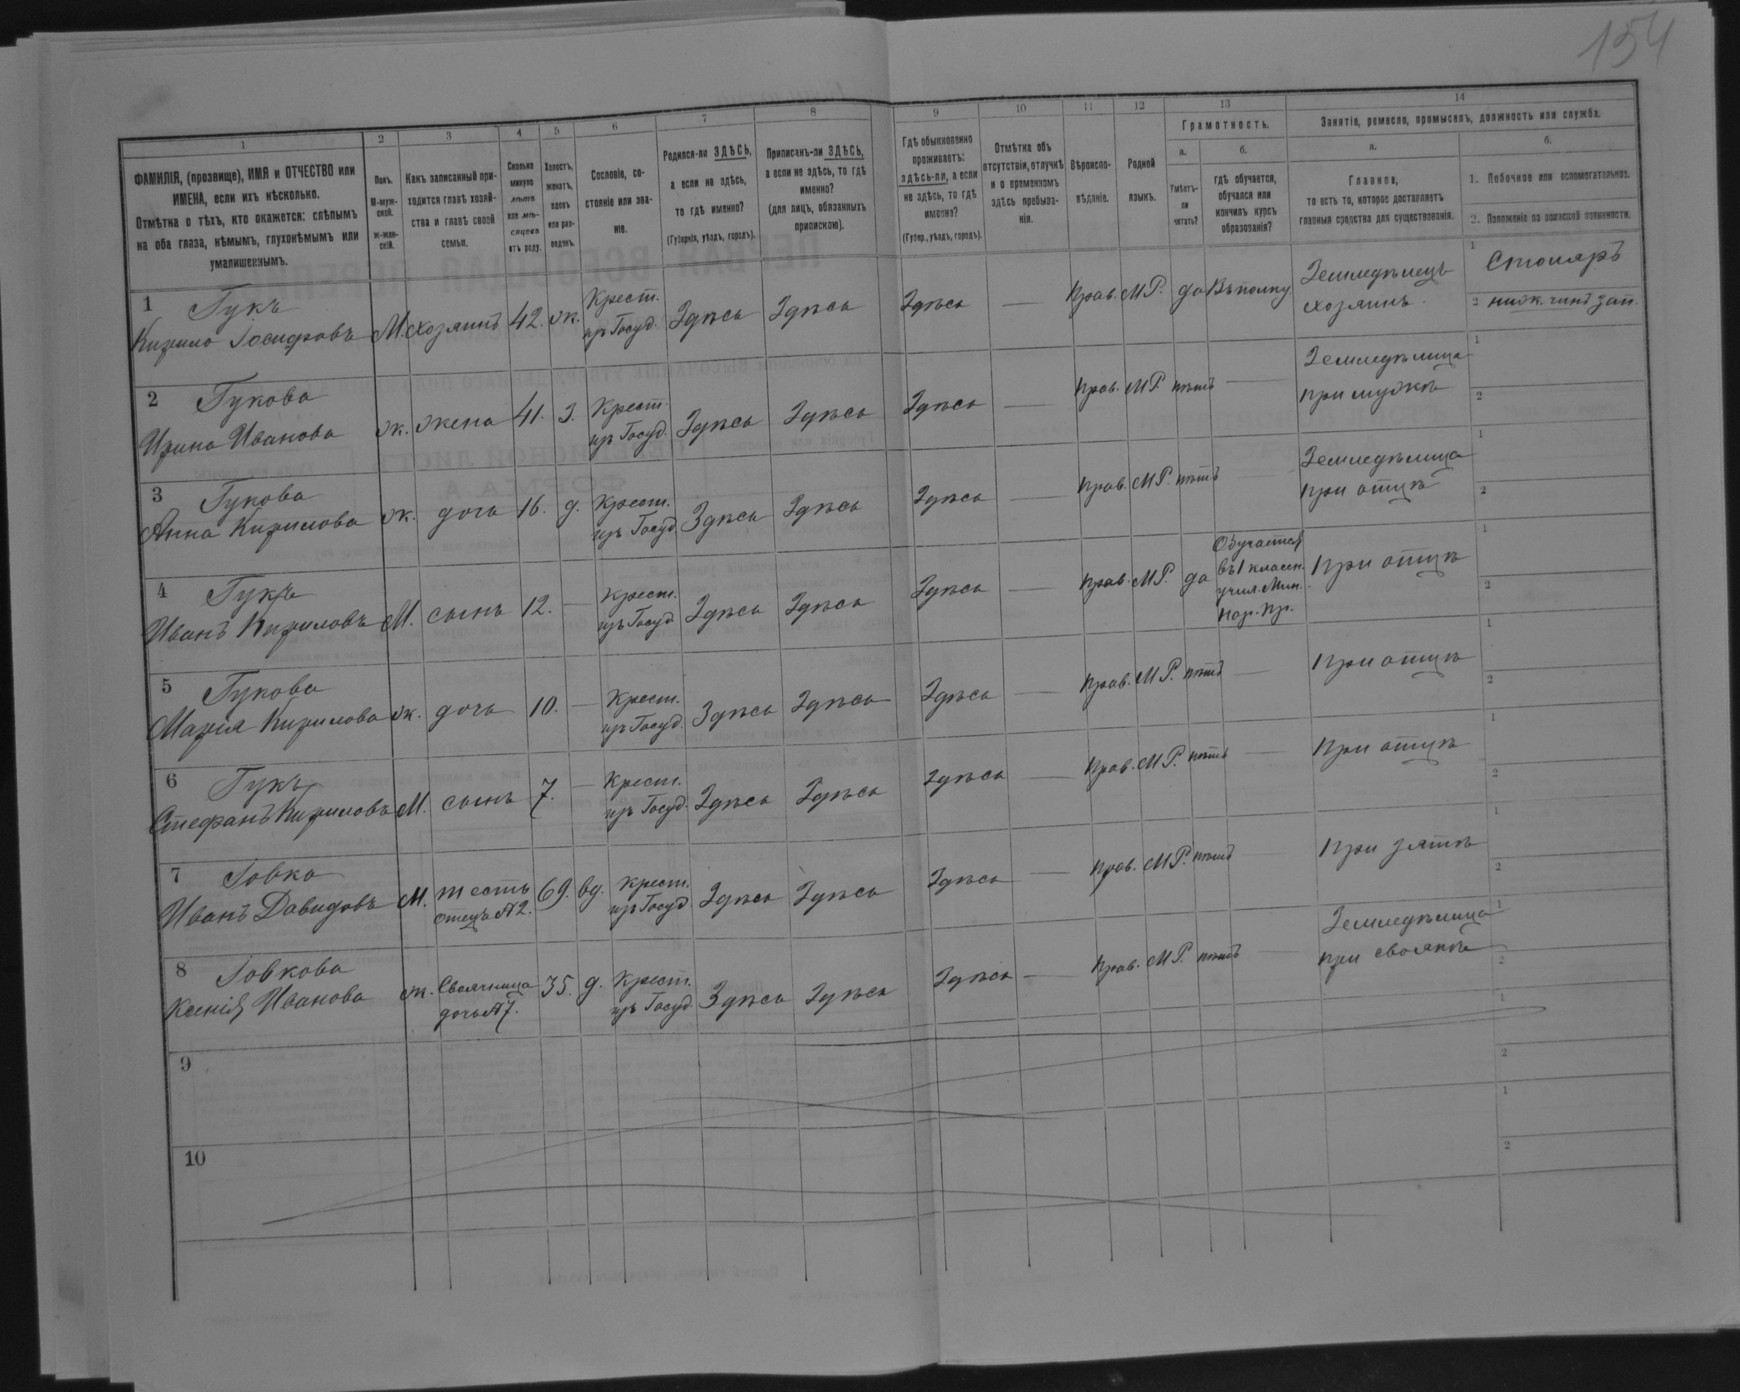 154
1 2 3 4 5 6 7 8 9 10 11 12 13 14
ФАМИЛІЯ, (прозвище), ИМЯ и ОТЧЕСТВО или
ИМЕНА, если ихъ нѣсколько.
Отмѣтка о тѣхъ, кто окажется: слѣпымъ
на оба глаза, нѣмымъ, глухонѣмымъ или
умалишеннымъ.
Полъ.
М-муж-
ской.
Ж-жен-
скій.
Какъ записанный при-
ходится главѣ хозяй-
ства и главѣ своей
семьи.
Сколько
минуло
лѣтъ
или мѣ-
сяцевъ
отъ роду.
Холостъ,
женатъ,
вдовъ
или раз-
веденъ.
Сословіе, со-
стояніе или зва-
ніе.
Родился-ли ЗДѢСЬ,
а если не здѣсь,
то гдѣ именно?
(Губернія, уѣздъ, городъ).
Приписанъ-ли ЗДѢСЬ,
а если не здѣсь, то гдѣ
именно?
(для лицъ, обязанныхъ
припискою).
Гдѣ обыкновенно
проживаетъ:
здѣсь-ли, а если
не здѣсь, то гдѣ
именно?
(Губер., уѣздъ, городъ).
Отмѣтка объ
отсутствіи, отлучкѣ
и о временномъ
здѣсь пребыва-
ніи.
Вѣроиспо-
вѣданіе.
Родной
языкъ.
Грамотность.
а.
Умѣетъ-
ли
читать?
б.
гдѣ обучается,
обучался или
кончилъ курсъ
образованія?
Занятіе, ремесло, промыселъ, должность или служба.
а.
Главное,
то есть то, которое доставляетъ
главныя средства для существованія.
б.
1. Побочное или вспомогательное.
2. Положеніе по воинской повинности.
1 Гукъ
Кирило Іосифовъ М. хозяинъ 42. ж. Крест. изъ Госуд. Здѣсь Здѣсь Здѣсь — Прав. М.Р. да Въ полку Земледѣлецъ хозяинъ 1 Столяръ
2 нижн. чинъ зап.
2 Гукова
Ирина Иванова ж. жена 41. з. Крест. изъ Госуд. Здѣсь Здѣсь Здѣсь — Прав. М.Р. нѣтъ — Земледѣлица при мужѣ 1
2
3 Гукова
Анна Кирилова ж. дочь 16. д. Крест. изъ Госуд. Здѣсь Здѣсь Здѣсь — Прав. М.Р. нѣтъ Земледѣлица при отцѣ 1
2
4 Гукъ
Иванъ Кириловъ М. сынъ 12. — Крест. изъ Госуд. Здѣсь Здѣсь Здѣсь — Прав. М.Р. да Обучается въ 1 класн. учил. Мин. Нар. Пр. При отцѣ 1
2
5 Гукова
Марія Кирилова ж. дочь 10. — Крест. изъ Госуд. Здѣсь Здѣсь Здѣсь — Прав. М.Р. нѣтъ — При отцѣ 1
2
6 Гукъ
Стефанъ Кириловъ М. сынъ 7. — Крест. изъ Госуд. Здѣсь Здѣсь Здѣсь — Прав. М.Р. нѣтъ — При отцѣ 1
2
7 Говка
Иванъ Давидовъ М. тесть отецъ №2. 69. вд. Крест. изъ Госуд. Здѣсь Здѣсь Здѣсь — Прав. М.Р. нѣтъ — При зятѣ 1
2
8 Говкова
Ксенія Иванова ж. Своячница дочь №7. 35. д. Крест. изъ Госуд. Здѣсь Здѣсь Здѣсь — Прав. М.Р. нѣтъ — Земледѣлица при своякѣ 1
2
9 1
2
10 1
2